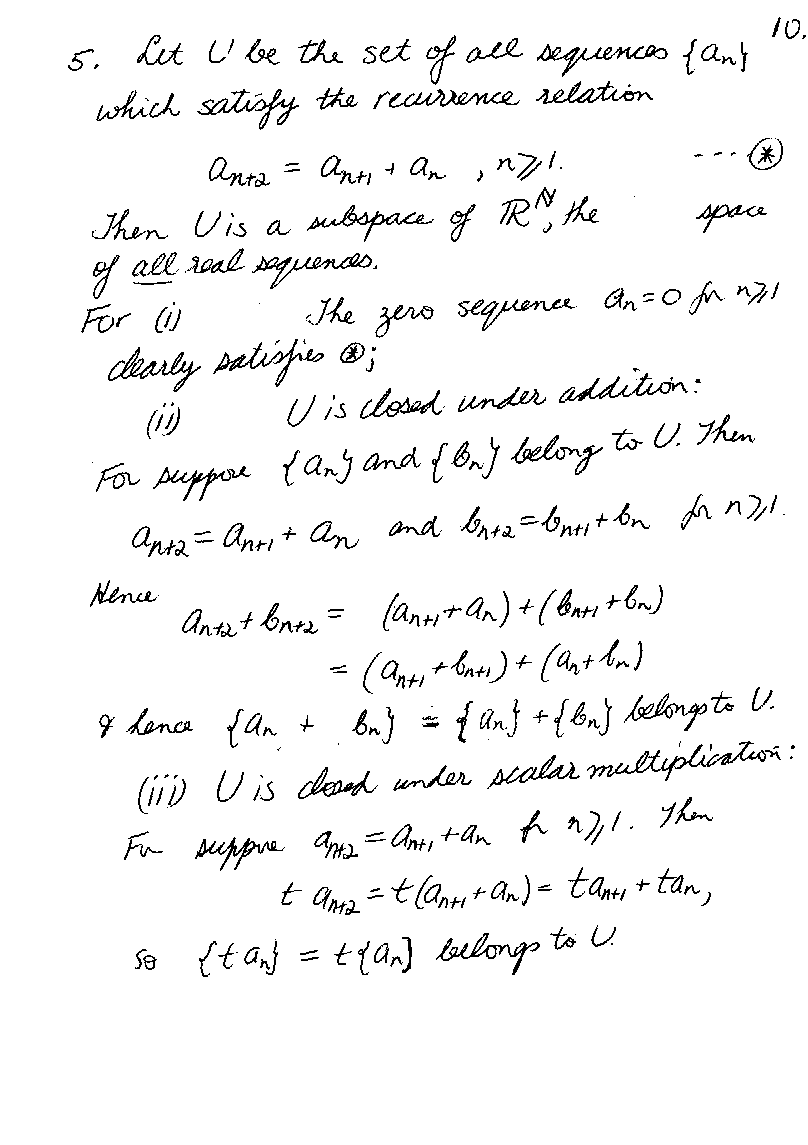 10.
5. Let U be the set of all sequences {aₙ}
which satisfy the recurrence relation
aₙ₊₂ = aₙ₊₁ + aₙ , n ⩾ 1. --- ⊛
Then U is a subspace of ℝ^ℕ, the space
of all real sequences.
For (i) The zero sequence aₙ = 0 for n ⩾ 1
clearly satisfies ⊛;
(ii) U is closed under addition:
For suppose {aₙ} and {bₙ} belong to U. Then
aₙ₊₂ = aₙ₊₁ + aₙ and bₙ₊₂ = bₙ₊₁ + bₙ for n ⩾ 1.
Hence
aₙ₊₂ + bₙ₊₂ = (aₙ₊₁ + aₙ) + (bₙ₊₁ + bₙ)
= (aₙ₊₁ + bₙ₊₁) + (aₙ + bₙ)
& hence {aₙ + bₙ} = {aₙ} + {bₙ} belongs to U.
(iii) U is closed under scalar multiplication:
For suppose aₙ₊₂ = aₙ₊₁ + aₙ for n ⩾ 1. Then
t aₙ₊₂ = t(aₙ₊₁ + aₙ) = taₙ₊₁ + taₙ,
so {t aₙ} = t{aₙ} belongs to U.